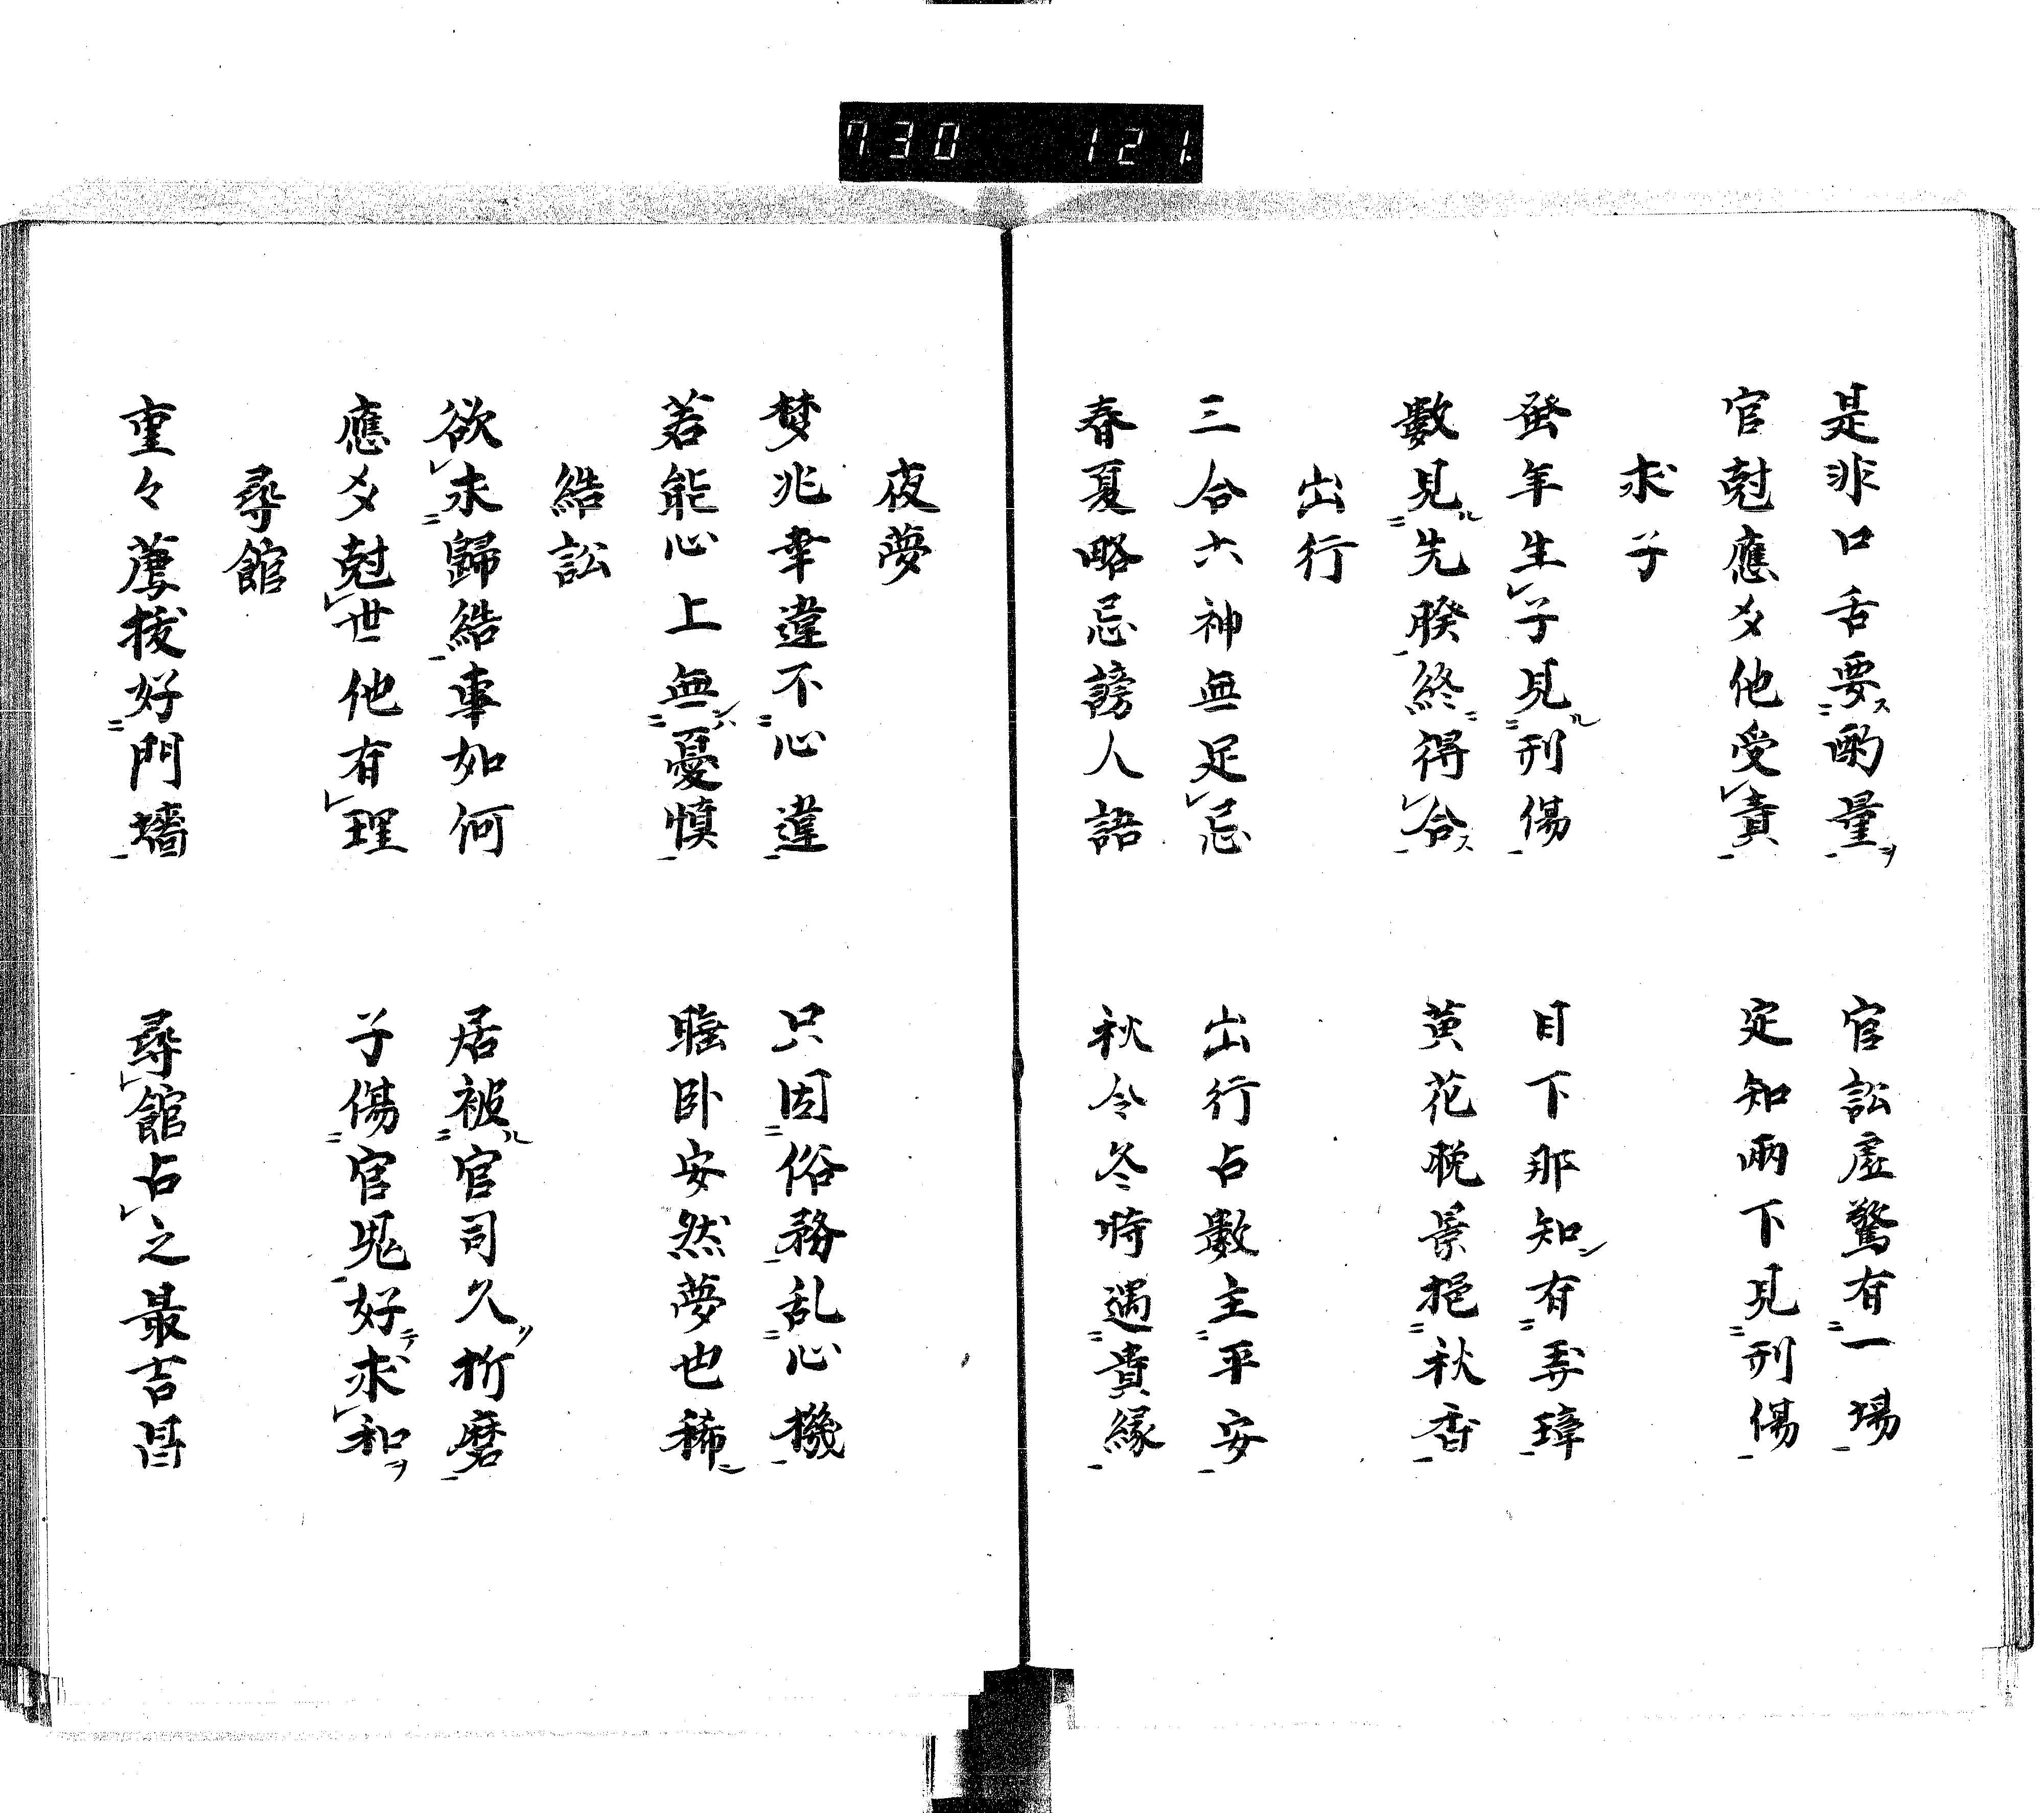 730 121.
是非口舌要ス酌量ヲ 官訟虚驚有一場
官尅應爻他受責 定知兩下見刑傷
求子
發年生子見ル刑傷 目下那知ン有弄璋
數見ル先暌終得合ス 黄花晚景挹秋香
出行
三合六神無足忌 出行占數主平安
春夏略忌謗人語 秋令冬時遇貴緣
夜夢
梦兆幸違不心違 只因俗務乱心機
若能心上無ンハ憂慎 臨卧安然夢也稀
結訟
欲未歸結事如何 居被ル官司久ソ折磨
應爻尅世他有理 子傷官鬼好テ求和ヲ
尋館
重々薦拔好門墻 尋館占之最吉昌